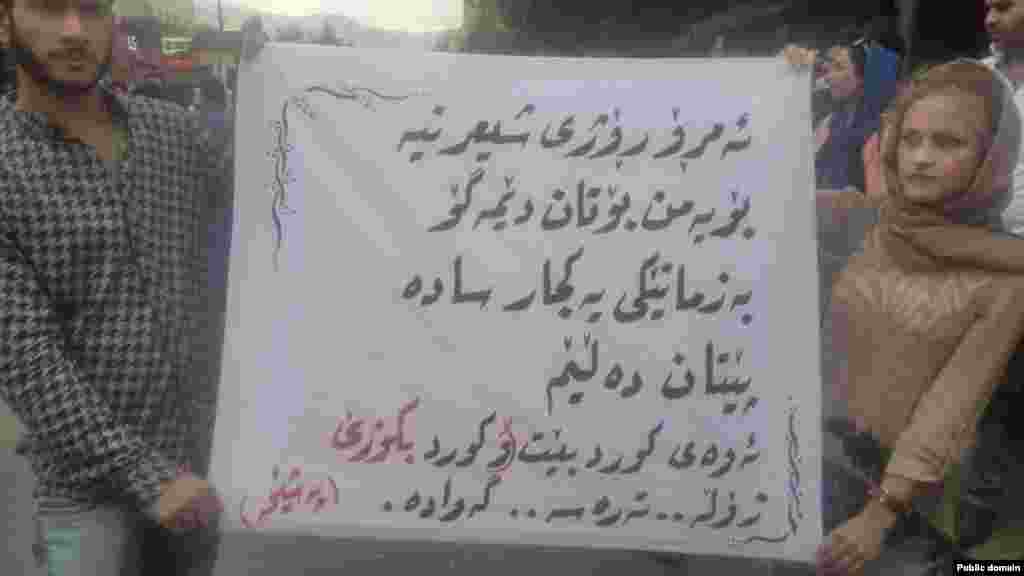 ئەمڕۆ ڕۆژی شیعر نیە
بۆیە من بۆتان دێمە گۆ
بە زمانێکی یەکجار سادە
پێتان دەڵێم
ئەوەی کورد بێت و کورد بکوژێ
زۆڵە.. تەرەسە.. گەوادە.
Public domain